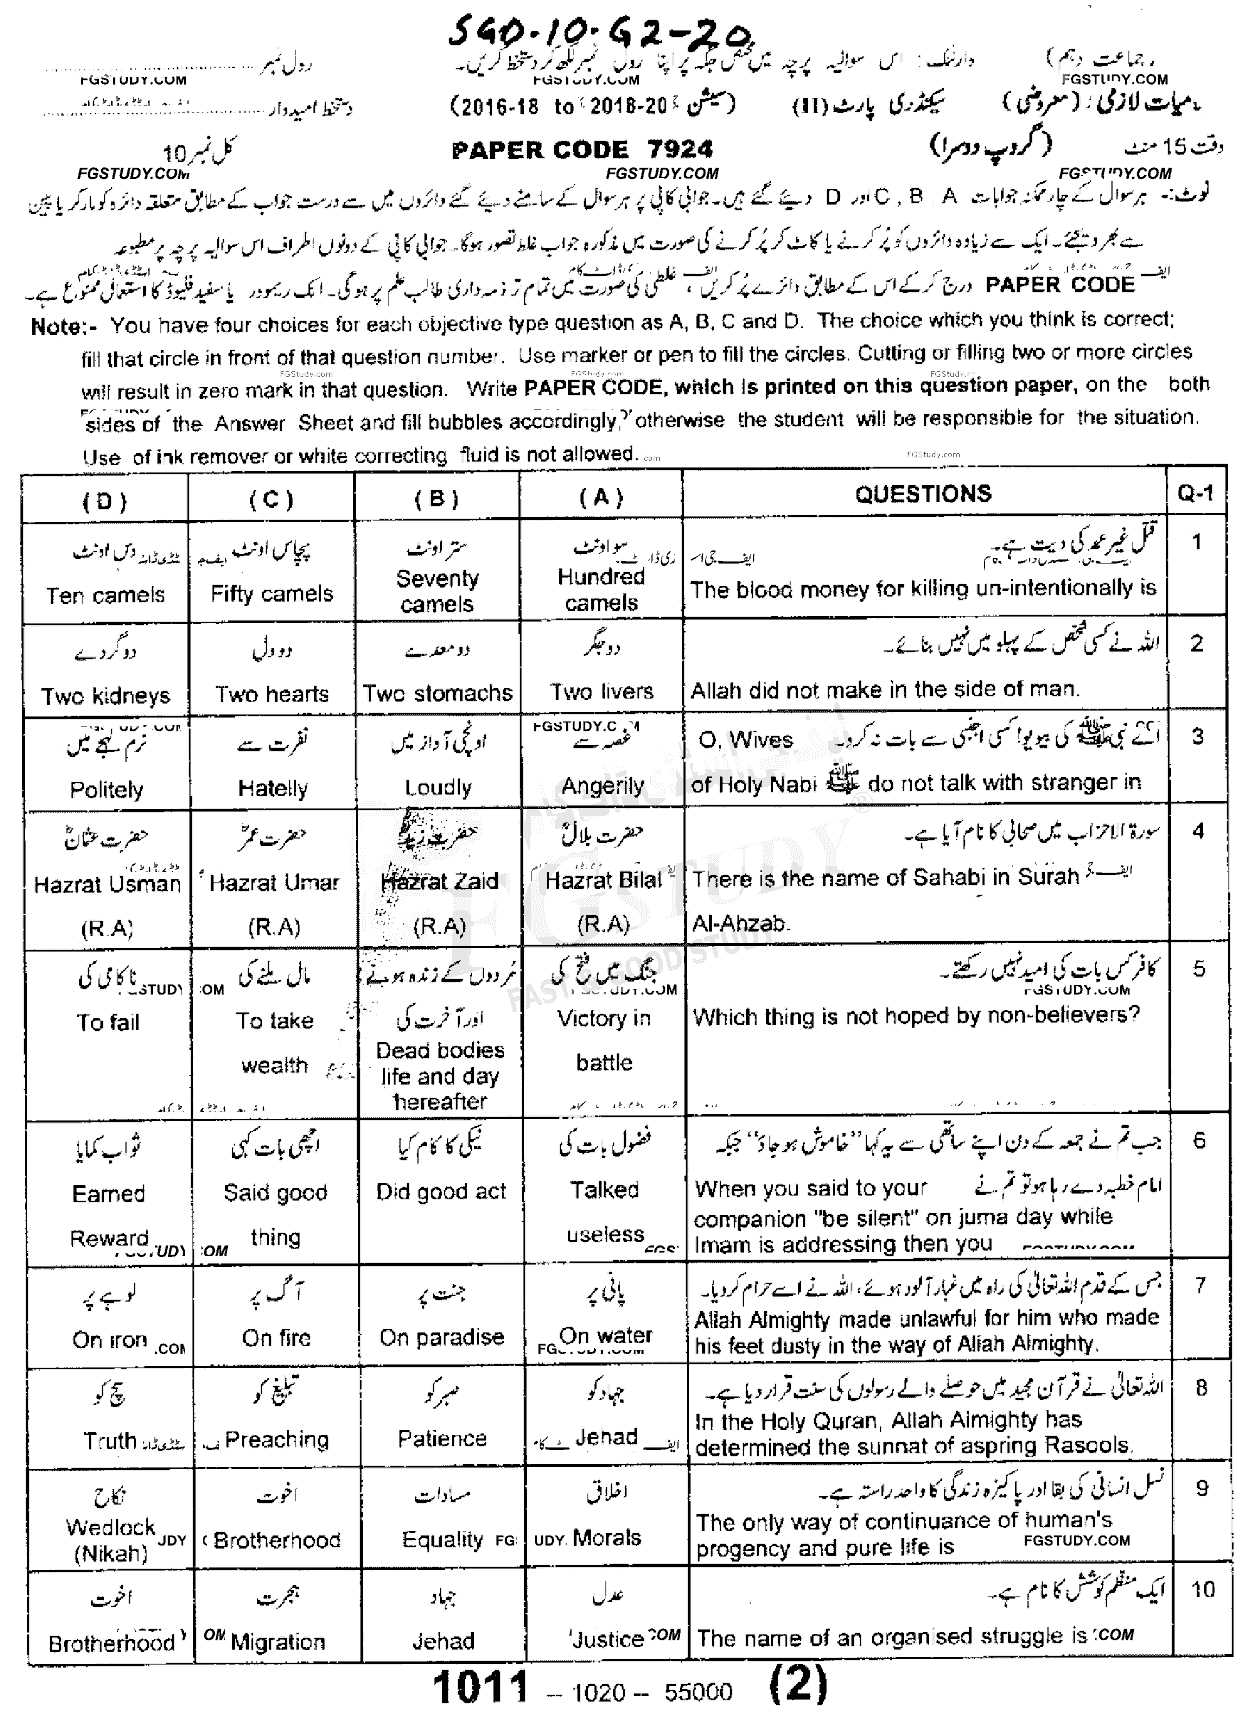 SGD-10-G2-20
رول نمبر ........................ وارننگ: اس سوالیہ پرچہ میں مختص جگہ پر اپنا رول نمبر لکھ کر دستخط کریں۔ (جماعت دہم)
FGSTUDY.COM FGSTUDY.COM FGSTUDY.COM
دستخط امیدوار ........................ (2016-18 to 2018-20 سیشن) سیکنڈری پارٹ (II) (معروضی) لازمی:
کل نمبر 10 PAPER CODE 7924 (گروپ دوسرا) وقت 15 منٹ
FGSTUDY.COM FGSTUDY.COM FGSTUDY.COM
نوٹ:- ہر سوال کے چار ممکنہ جوابات A ، B ، C اور D دیئے گئے ہیں۔ جوابی کاپی پر ہر سوال کے سامنے دیئے گئے دائروں میں سے درست جواب کے مطابق متعلقہ دائرہ کو مارکر یا پین
سے بھر دیجئے۔ ایک سے زیادہ دائروں کو پُر کرنے یا کاٹ کر پُر کرنے کی صورت میں مذکورہ جواب غلط تصور ہوگا۔ جوابی کاپی کے دونوں اطراف اس سوالیہ پرچہ پر مطبوعہ
PAPER CODE درج کر کے اس کے مطابق دائرے پُر کریں، غلطی کی صورت میں تمام تر ذمہ داری طالب علم پر ہوگی۔ انک ریموور یا سفید فلیوڈ کا استعمال ممنوع ہے۔
Note:- You have four choices for each objective type question as A, B, C and D. The choice which you think is correct;
fill that circle in front of that question number. Use marker or pen to fill the circles. Cutting or filling two or more circles
FGStudy.com FGStudy.com
will result in zero mark in that question. Write PAPER CODE, which is printed on this question paper, on the both
sides of the Answer Sheet and fill bubbles accordingly, otherwise the student will be responsible for the situation.
Use of ink remover or white correcting fluid is not allowed.
FGStudy.com
(D) (C) (B) (A) QUESTIONS Q-1
دس اونٹ پچاس اونٹ ستر اونٹ سو اونٹ قتل غیر عمد کی دیت ہے۔ 1
Ten camels Fifty camels Seventy camels Hundred camels The blood money for killing un-intentionally is
دو گردے دو دل دو معدے دو جگر اللہ نے کسی شخص کے پہلو میں نہیں بنائے۔ 2
Two kidneys Two hearts Two stomachs Two livers Allah did not make in the side of man.
نرم لہجے میں نفرت سے اونچی آواز میں غصہ سے اے نبی ﷺ کی بیویو! کسی اجنبی سے بات نہ کرو۔ O, Wives 3
Politely Hatelly Loudly Angerily of Holy Nabi ﷺ do not talk with stranger in
حضرت عثمانؓ حضرت عمرؓ حضرت زیدؓ حضرت بلالؓ سورۃ الاحزاب میں صحابی کا نام آیا ہے۔ 4
Hazrat Usman Hazrat Umar Hazrat Zaid Hazrat Bilal There is the name of Sahabi in Surah
(R.A) (R.A) (R.A) (R.A) Al-Ahzab.
ناکامی کی مال ملنے کی مُردوں کے زندہ ہونے جنگ میں فتح کی کافر کس بات کی امید نہیں رکھتے۔ 5
اور آخرت کی
To fail To take wealth Dead bodies life and day hereafter Victory in battle Which thing is not hoped by non-believers?
ثواب کمایا اچھی بات کہی نیکی کا کام کیا فضول بات کی جب تم نے جمعہ کے دن اپنے ساتھی سے یہ کہا "خاموش ہو جاؤ" جبکہ 6
امام خطبہ دے رہا ہو تو تم نے
Earned Reward Said good thing Did good act Talked useless When you said to your
companion "be silent" on juma day while
Imam is addressing then you
لوہے پر آگ پر جنت پر پانی پر جس کے قدم اللہ تعالیٰ کی راہ میں غبار آلود ہوئے، اللہ نے اسے حرام کر دیا۔ 7
On iron On fire On paradise On water Allah Almighty made unlawful for him who made
his feet dusty in the way of Allah Almighty.
سچ کو تبلیغ کو صبر کو جہاد کو اللہ تعالیٰ نے قرآن مجید میں حوصلے والے رسولوں کی سنت قرار دیا ہے۔ 8
Truth Preaching Patience Jehad In the Holy Quran, Allah Almighty has
determined the sunnat of aspring Rascols.
نکاح اخوت مساوات اخلاق نسل انسانی کی بقا اور پاکیزہ زندگی کا واحد راستہ ہے۔ 9
Wedlock (Nikah) Brotherhood Equality Morals The only way of continuance of human's
progency and pure life is FGSTUDY.COM
اخوت ہجرت جہاد عدل ایک منظم کوشش کا نام ہے۔ 10
Brotherhood Migration Jehad Justice The name of an organised struggle is
1011 -- 1020 -- 55000 (2)